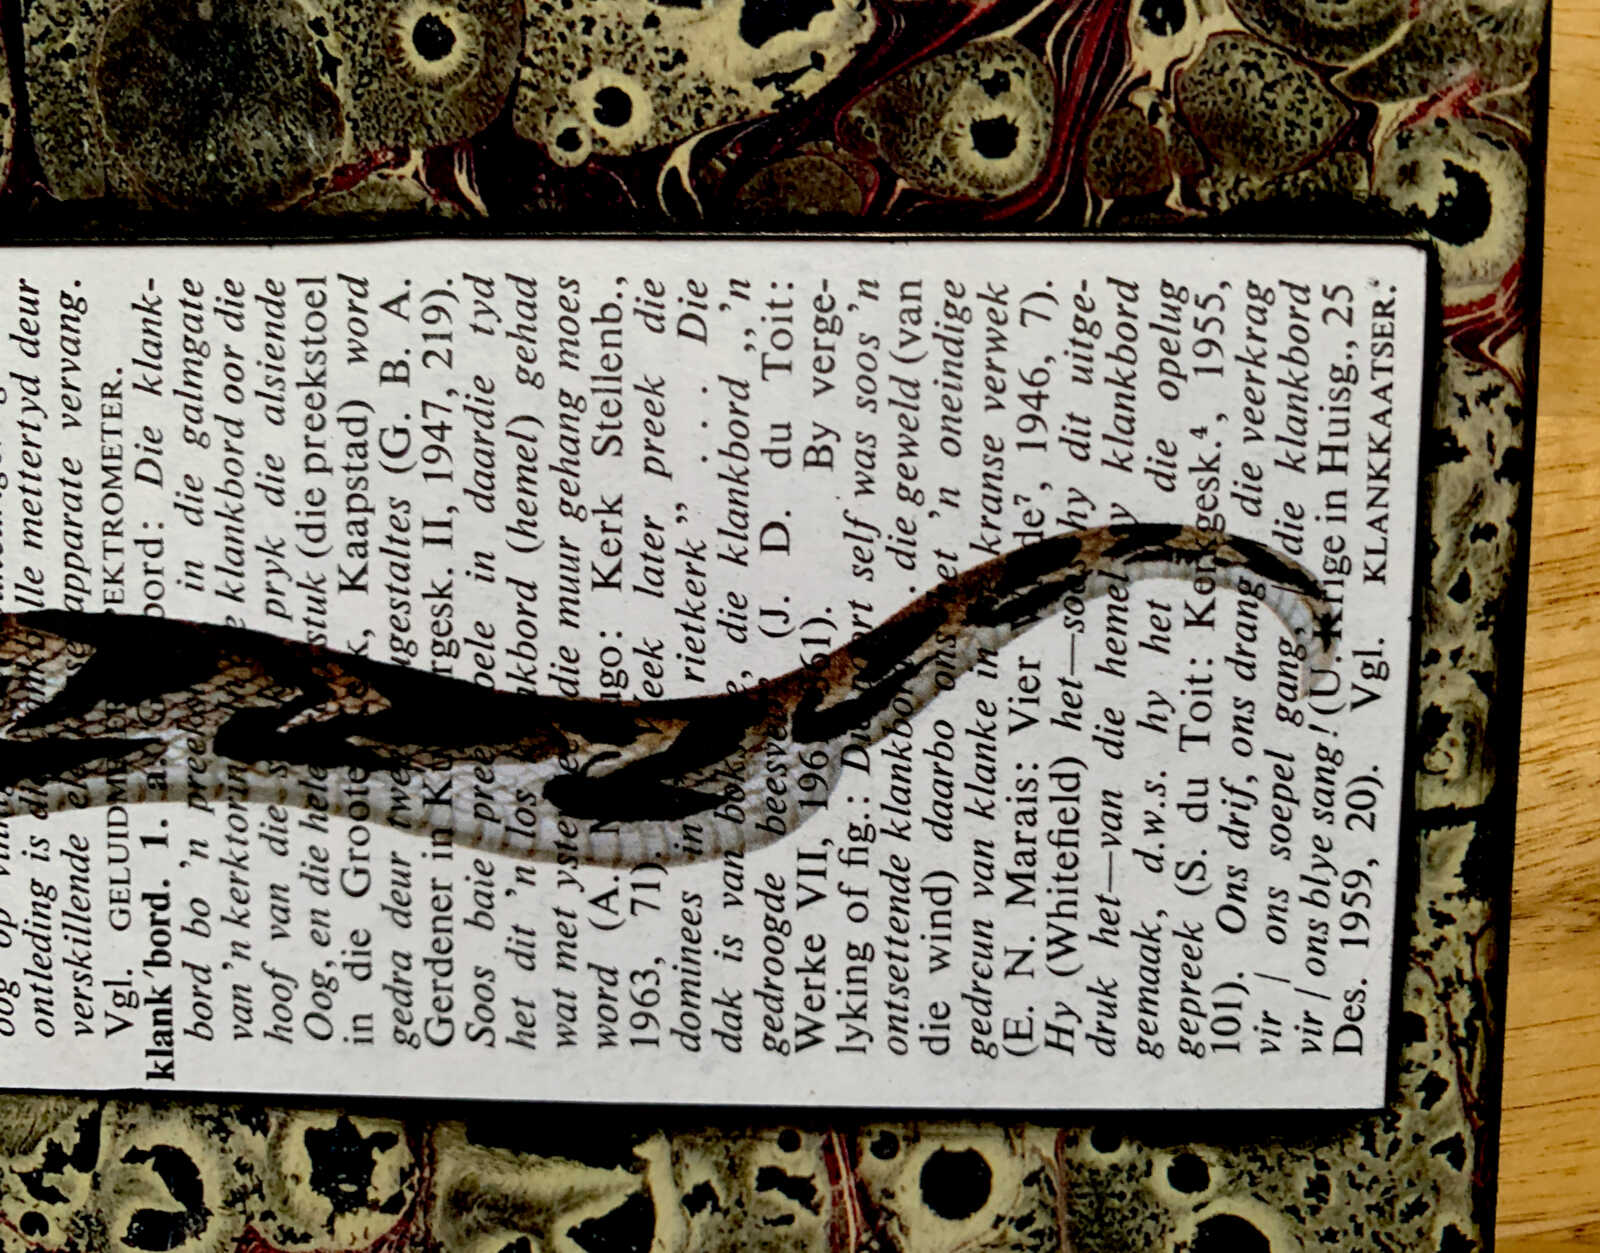 oog op
ontleding is lle mettertyd deur
verskillende apparate vervang.
Vgl. GELUID EKTROMETER.
klank´bord. 1. a. oord: Die klank-
bord bo 'n preek in die galmgate
van 'n kerktorin klankbord oor die
hoof van die pryk die alsiende
Oog, en die hele stuk (die preekstoel
in die Groote Kaapstad) word
gedra deur twee ugestaltes (G. B. A.
Gerdener in K rgesk. II, 1947, 219).
Soos baie pree oele in daardie tyd
het dit 'n los nkbord (hemel) gehad
wat met yster die muur gehang moes
word (A. ugo: Kerk Stellenb.,
1963, 71). eek later preek die
dominees in rietkerk” . . . Die
dak is van bok , die klankbord ,,'n
gedroogde beesve (J. D. du Toit:
Werke VII, 196 61). By verge-
lyking of fig.: D rt self was soos 'n
ontsettende klankbor . die geweld (van
die wind) daarbo ons et 'n oneindige
gedreun van klanke in kranse verwek
(E. N. Marais: Vier de⁷, 1946, 7).
Hy (Whitefield) het—soo hy dit uitge-
druk het—van die hemel y klankbord
gemaak, d.w.s. hy het die opelug
gepreek (S. du Toit: Kerkgesk.⁴, 1955,
101). Ons drif, ons drang die veerkrag
vir / ons soepel gang, die klankbord
vir / ons blye sang! (U. Krige in Huisg., 25
Des. 1959, 20). Vgl. KLANKKAATSER.